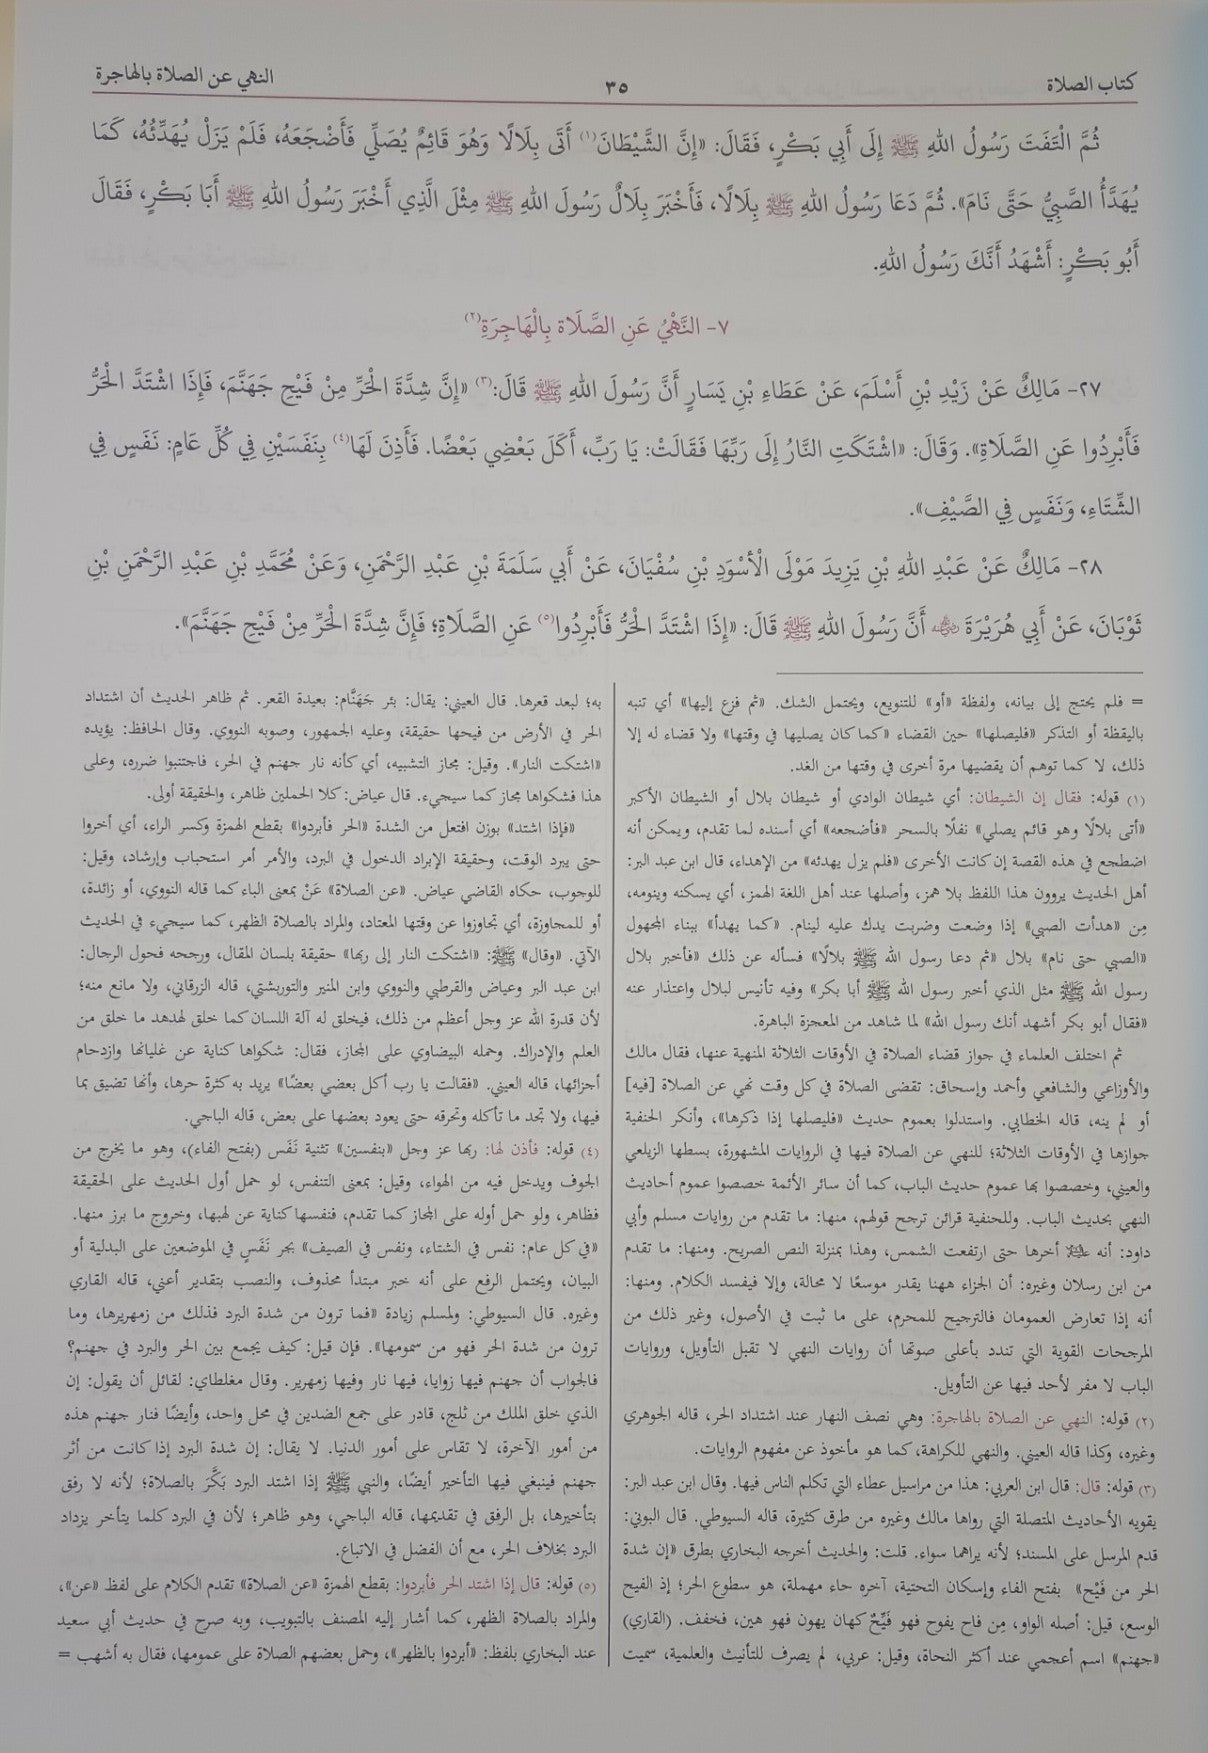 كتاب الصلاة
٣٥
النهي عن الصلاة بالهاجرة
ثُمَّ الْتَفَتَ رَسُولُ اللهِ ﷺ إِلَى أَبِي بَكْرٍ، فَقَالَ: «إِنَّ الشَّيْطَانَ(١) أَتَى بِلَالًا وَهُوَ قَائِمٌ يُصَلِّي فَأَضْجَعَهُ، فَلَمْ يَزَلْ يُهَدِّئُهُ، كَمَا
يُهَدَّأُ الصَّبِيُّ حَتَّى نَامَ». ثُمَّ دَعَا رَسُولُ اللهِ ﷺ بِلَالًا، فَأَخْبَرَ بِلَالٌ رَسُولَ اللهِ ﷺ مِثْلَ الَّذِي أَخْبَرَ رَسُولُ اللهِ ﷺ أَبَا بَكْرٍ، فَقَالَ
أَبُو بَكْرٍ: أَشْهَدُ أَنَّكَ رَسُولُ اللهِ.
٧- النَّهْيُ عَنِ الصَّلَاةِ بِالْهَاجِرَةِ(٢)
٢٧- مَالِكٌ عَنْ زَيْدِ بْنِ أَسْلَمَ، عَنْ عَطَاءِ بْنِ يَسَارٍ أَنَّ رَسُولَ اللهِ ﷺ قَالَ:(٣) «إِنَّ شِدَّةَ الْحَرِّ مِنْ فَيْحِ جَهَنَّمَ، فَإِذَا اشْتَدَّ الْحَرُّ
فَأَبْرِدُوا عَنِ الصَّلَاةِ». وَقَالَ: «اشْتَكَتِ النَّارُ إِلَى رَبِّهَا فَقَالَتْ: يَا رَبِّ، أَكَلَ بَعْضِي بَعْضًا. فَأَذِنَ لَهَا(٤) بِنَفَسَيْنِ فِي كُلِّ عَامٍ: نَفَسٍ فِي
الشِّتَاءِ، وَنَفَسٍ فِي الصَّيْفِ».
٢٨- مَالِكٌ عَنْ عَبْدِ اللهِ بْنِ يَزِيدَ مَوْلَى الْأَسْوَدِ بْنِ سُفْيَانَ، عَنْ أَبِي سَلَمَةَ بْنِ عَبْدِ الرَّحْمَنِ، وَعَنْ مُحَمَّدِ بْنِ عَبْدِ الرَّحْمَنِ بْنِ
ثَوْبَانَ، عَنْ أَبِي هُرَيْرَةَ ﵁ أَنَّ رَسُولَ اللهِ ﷺ قَالَ: «إِذَا اشْتَدَّ الْحَرُّ فَأَبْرِدُوا(٥) عَنِ الصَّلَاةِ؛ فَإِنَّ شِدَّةَ الْحَرِّ مِنْ فَيْحِ جَهَنَّمَ».
= فلم يحتج إلى بيانه، ولفظة «أو» للتنويع، ويحتمل الشك. «ثم فزع إليها» أي تنبه
باليقظة أو التذكر «فليصلها» حين القضاء «كما كان يصليها في وقتها» ولا قضاء له إلا
ذلك، لا كما توهم أن يقضيها مرة أخرى في وقتها من الغد.
(١) قوله: فقال إن الشيطان: أي شيطان الوادي أو شيطان بلال أو الشيطان الأكبر
«أتى بلالًا وهو قائم يصلي» نفلًا بالسحر «فأضجعه» أي أسنده لما تقدم، ويمكن أنه
اضطجع في هذه القصة إن كانت الأخرى «فلم يزل يهدئه» من الإهداء، قال ابن عبد البر:
أهل الحديث يروون هذا اللفظ بلا همز، وأصلها عند أهل اللغة الهمز، أي يسكنه وينومه،
مِن «هدأت الصبي» إذا وضعت وضربت يدك عليه لينام. «كما يهدأ» ببناء المجهول
«الصبي حتى نام» بلال «ثم دعا رسول الله ﷺ بلالًا» فسأله عن ذلك «فأخبر بلال
رسول الله ﷺ مثل الذي أخبر رسول الله ﷺ أبا بكر» وفيه تأنيس لبلال واعتذار عنه
«فقال أبو بكر أشهد أنك رسول الله» لما شاهد من المعجزة الباهرة.
ثم اختلف العلماء في جواز قضاء الصلاة في الأوقات الثلاثة المنهية عنها، فقال مالك
والأوزاعي والشافعي وأحمد وإسحاق: تقضى الصلاة في كل وقت نهي عن الصلاة [فيه]
أو لم ينه، قاله الخطابي. واستدلوا بعموم حديث «فليصلها إذا ذكرها»، وأنكر الحنفية
جوازها في الأوقات الثلاثة؛ للنهي عن الصلاة فيها في الروايات المشهورة، بسطها الزيلعي
والعيني، وخصصوا بها عموم حديث الباب، كما أن سائر الأئمة خصصوا عموم أحاديث
النهي بحديث الباب. وللحنفية قرائن ترجح قولهم، منها: ما تقدم من روايات مسلم وأبي
داود: أنه ﵇ أخرها حتى ارتفعت الشمس، وهذا بمنزلة النص الصريح. ومنها: ما تقدم
من ابن رسلان وغيره: أن الجزاء ههنا يقدر موسعًا لا محالة، وإلا فيفسد الكلام. ومنها:
أنه إذا تعارض العمومان فالترجيح للمحرم، على ما ثبت في الأصول، وغير ذلك من
المرجحات القوية التي تندد بأعلى صوتها أن روايات النهي لا تقبل التأويل، وروايات
الباب لا مفر لأحد فيها عن التأويل.
(٢) قوله: النهي عن الصلاة بالهاجرة: وهي نصف النهار عند اشتداد الحر، قاله الجوهري
وغيره، وكذا قاله العيني. والنهي للكراهة، كما هو مأخوذ عن مفهوم الروايات.
(٣) قوله: قال: قال ابن العربي: هذا من مراسيل عطاء التي تكلم الناس فيها. وقال ابن عبد البر:
يقويه الأحاديث المتصلة التي رواها مالك وغيره من طرق كثيرة، قاله السيوطي. قال البوني:
قدم المرسل على المسند؛ لأنه يراهما سواء. قلت: والحديث أخرجه البخاري بطرق «إن شدة
الحر من فَيْح» بفتح الفاء وإسكان التحتية، آخره حاء مهملة، هو سطوع الحر؛ إذ الفيح
الوسع، قيل: أصله الواو، مِن فاح يفوح فهو فَيِّحٌ كهان يهون فهو هين، فخفف. (القاري)
«جهنم» اسم أعجمي عند أكثر النحاة، وقيل: عربي، لم يصرف للتأنيث والعلمية، سميت
به؛ لبعد قعرها. قال العيني: يقال: بئر جَهَنَّام: بعيدة القعر. ثم ظاهر الحديث أن اشتداد
الحر في الأرض من فيحها حقيقة، وعليه الجمهور، وصوبه النووي. وقال الحافظ: يؤيده
«اشتكت النار». وقيل: مجاز التشبيه، أي كأنه نار جهنم في الحر، فاجتنبوا ضرره، وعلى
هذا فشكواها مجاز كما سيجيء. قال عياض: كلا الحملين ظاهر، والحقيقة أولى.
«فإذا اشتد» بوزن افتعل من الشدة «الحر فأبردوا» بقطع الهمزة وكسر الراء، أي أخروا
حتى يبرد الوقت، وحقيقة الإبراد الدخول في البرد، والأمر أمر استحباب وإرشاد، وقيل:
للوجوب، حكاه القاضي عياض. «عن الصلاة» عَنْ بمعنى الباء كما قاله النووي، أو زائدة،
أو للمجاوزة، أي تجاوزوا عن وقتها المعتاد، والمراد بالصلاة الظهر، كما سيجيء في الحديث
الآتي. «وقال» ﷺ: «اشتكت النار إلى ربها» حقيقة بلسان المقال، ورجحه فحول الرجال:
ابن عبد البر وعياض والقرطبي والنووي وابن المنير والتوربشتي، قاله الزرقاني، ولا مانع منه؛
لأن قدرة الله عز وجل أعظم من ذلك، فيخلق له آلة اللسان كما خلق لهدهد ما خلق من
العلم والإدراك. وحمله البيضاوي على المجاز، فقال: شكواها كناية عن غليانها وازدحام
أجزائها، قاله العيني. «فقالت يا رب أكل بعضي بعضًا» يريد به كثرة حرها، وأنها تضيق بما
فيها، ولا تجد ما تأكله وتحرقه حتى يعود بعضها على بعض، قاله الباجي.
(٤) قوله: فأذن لها: ربها عز وجل «بنفسين» تثنية نَفَس (بفتح الفاء)، وهو ما يخرج من
الجوف ويدخل فيه من الهواء، وقيل: بمعنى التنفس، لو حمل أول الحديث على الحقيقة
فظاهر، ولو حمل أوله على المجاز كما تقدم، فنفسها كناية عن لهبها، وخروج ما برز منها.
«في كل عام: نفس في الشتاء، ونفس في الصيف» بجر نَفَسٍ في الموضعين على البدلية أو
البيان، ويحتمل الرفع على أنه خبر مبتدأ محذوف، والنصب بتقدير أعني، قاله القاري
وغيره. قال السيوطي: ولمسلم زيادة «فما ترون من شدة البرد فذلك من زمهريرها، وما
ترون من شدة الحر فهو من سمومها». فإن قيل: كيف يجمع بين الحر والبرد في جهنم؟
فالجواب أن جهنم فيها زوايا، فيها نار وفيها زمهرير. وقال مغلطاي: لقائل أن يقول: إن
الذي خلق الملك من ثلج، قادر على جمع الضدين في محل واحد، وأيضًا فنار جهنم هذه
من أمور الآخرة، لا تقاس على أمور الدنيا. لا يقال: إن شدة البرد إذا كانت من أثر
جهنم فينبغي فيها التأخير أيضًا، والنبي ﷺ إذا اشتد البرد بَكَّرَ بالصلاة؛ لأنه لا رفق
بتأخيرها، بل الرفق في تقديمها، قاله الباجي، وهو ظاهر؛ لأن في البرد كلما يتأخر يزداد
البرد بخلاف الحر، مع أن الفضل في الاتباع.
(٥) قوله: قال إذا اشتد الحر فأبردوا: بقطع الهمزة «عن الصلاة» تقدم الكلام على لفظ «عن»،
والمراد بالصلاة الظهر، كما أشار إليه المصنف بالتبويب، وبه صرح في حديث أبي سعيد
عند البخاري بلفظ: «أبردوا بالظهر»، وحمل بعضهم الصلاة على عمومها، فقال به أشهب =